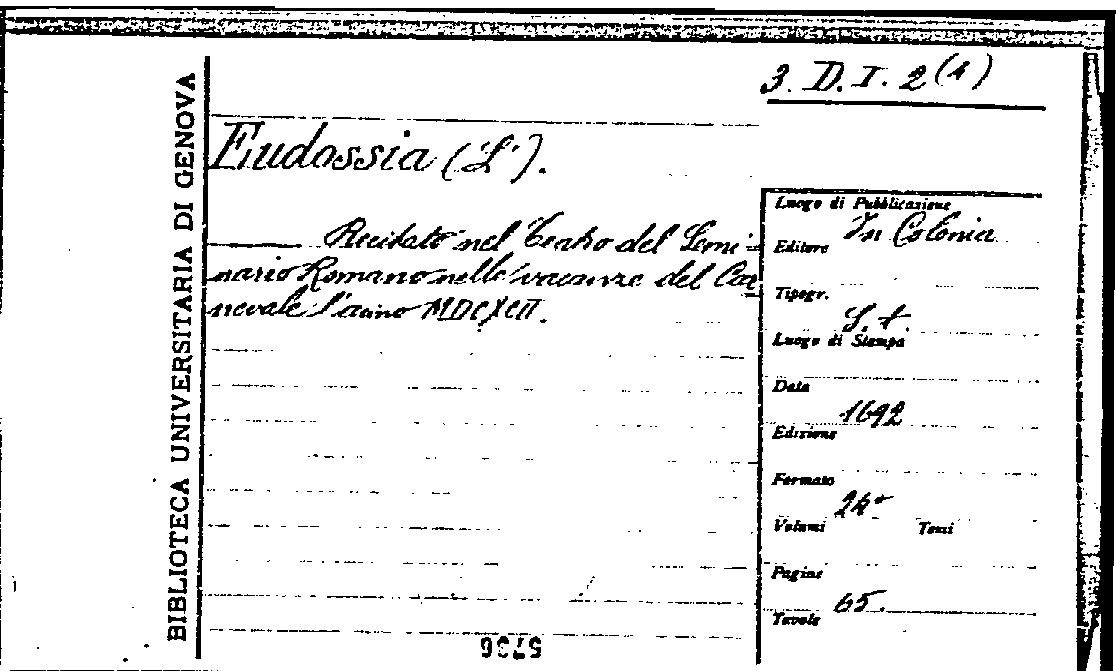 BIBLIOTECA UNIVERSITARIA DI GENOVA
3. D. I. 2 (4)
Eudossia (L').
Recitato nel Teatro del Semi=
nario Romano nelle vacanze del Car
nevale l'anno MDCXCII.
Luogo di Pubblicazione
In Colonia
Editore
Tipogr.
S. t.
Luogo di Stampa
Data
1692
Edizione
Formato
24°
Volumi Tomi
Pagine
65.
Tavole
5736